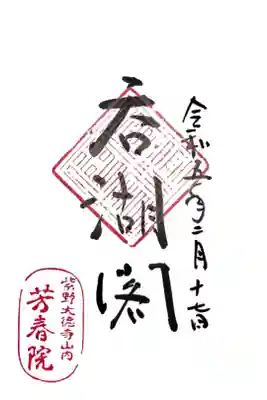 令和五年二月十七日
呑湖閣
紫野大徳寺山内
芳春院